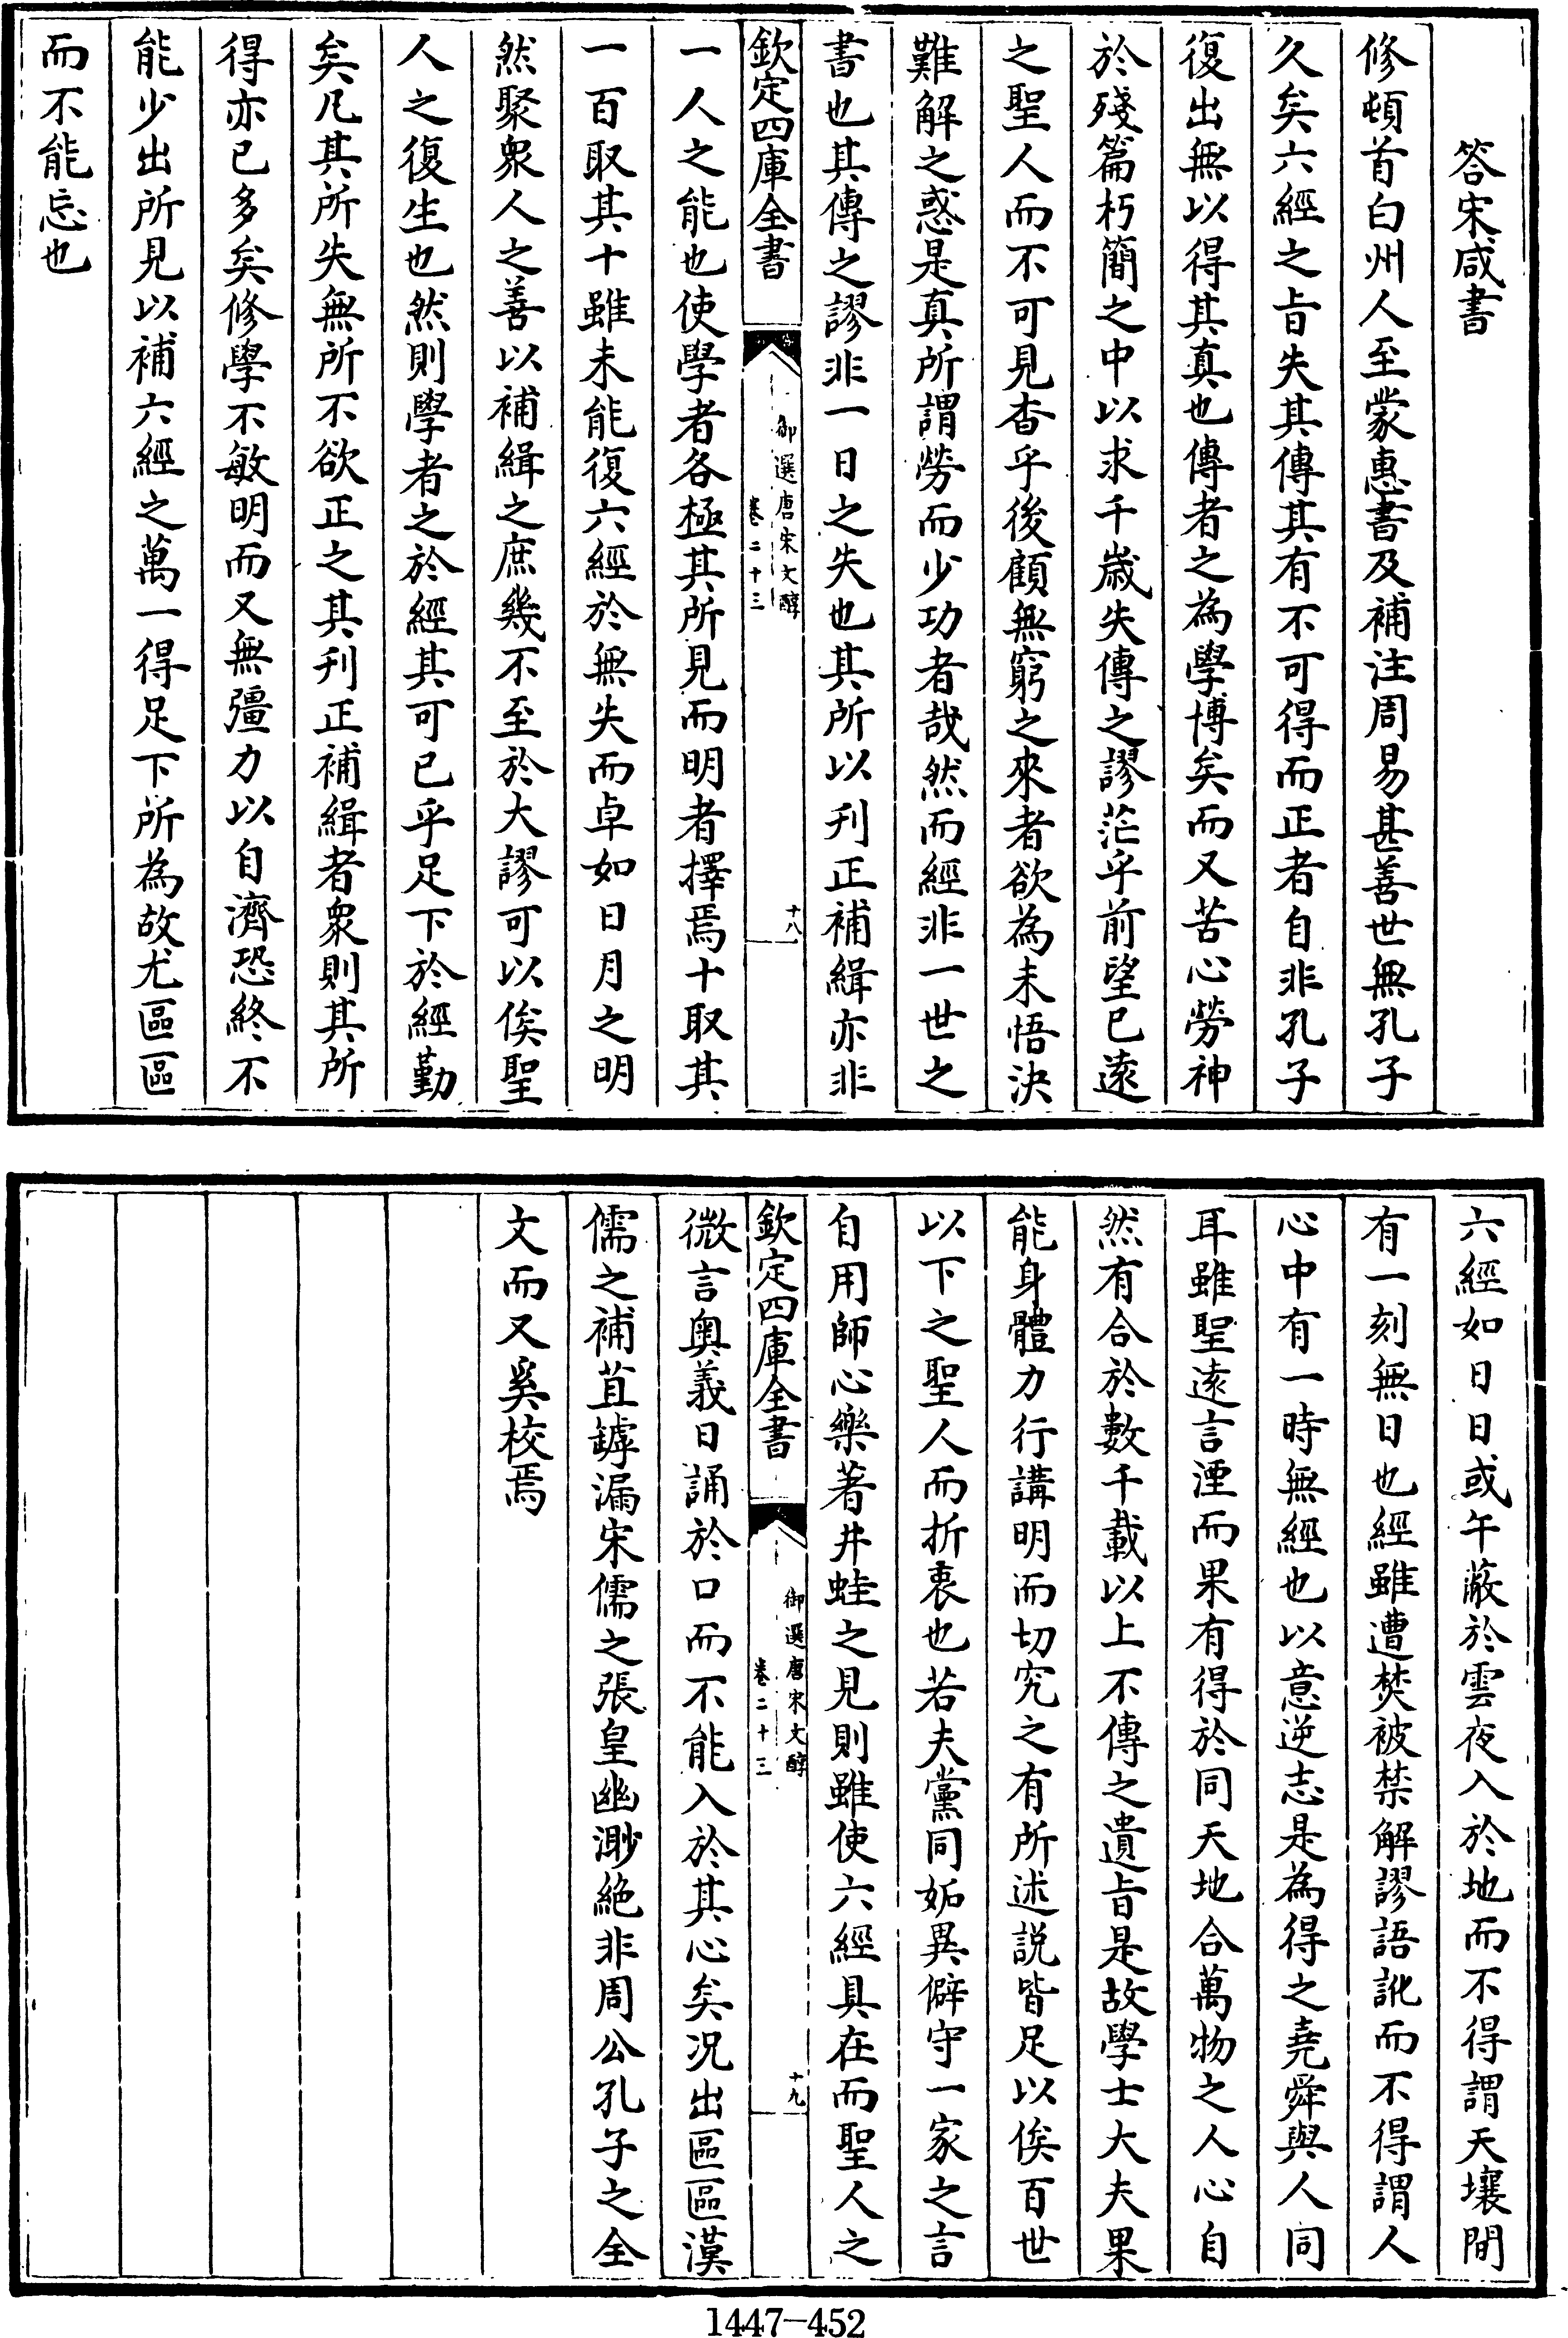 答宋咸書
修頓首白州人至蒙惠書及補注周易甚善世無孔子
久矣六經之㫖失其傳其有不可得而正者自非孔子
復出無以得其真也傳者之為學博矣而又苦心勞神
於殘篇朽簡之中以求千歲失傳之謬茫乎前望已逺
之聖人而不可見杳乎後顧無窮之來者欲為未悟決
難解之惑是真所謂勞而少功者哉然而經非一世之
書也其傳之謬非一日之失也其所以刋正補緝亦非
欽定四庫全書
御選唐宋文醇
卷二十三
十八
一人之能也使學者各極其所見而明者擇焉十取其
一百取其十雖未能復六經於無失而卓如日月之明
然聚衆人之善以補緝之庶幾不至於大謬可以俟聖
人之復生也然則學者之於經其可已乎足下於經勤
矣凡其所失無所不欲正之其刋正補緝者衆則其所
得亦已多矣修學不敏明而又無彊力以自濟恐終不
能少出所見以補六經之萬一得足下所為故尤區區
而不能忘也
六經如日日或午蔽於雲夜入於地而不得謂天壤間
有一刻無日也經雖遭焚被禁解謬語訛而不得謂人
心中有一時無經也以意逆志是為得之堯舜與人同
耳雖聖逺言湮而果有得於同天地合萬物之人心自
然有合於數千載以上不傳之遺㫖是故學士大夫果
能身體力行講明而切究之有所述説皆足以俟百世
以下之聖人而折衷也若夫黨同妬異僻守一家之言
自用師心樂著井蛙之見則雖使六經具在而聖人之
欽定四庫全書
御選唐宋文醇
卷二十三
十九
微言奥義日誦於口而不能入於其心矣况出區區漢
儒之補苴罅漏宋儒之張皇幽渺絶非周公孔子之全
文而又奚校焉
1447-452